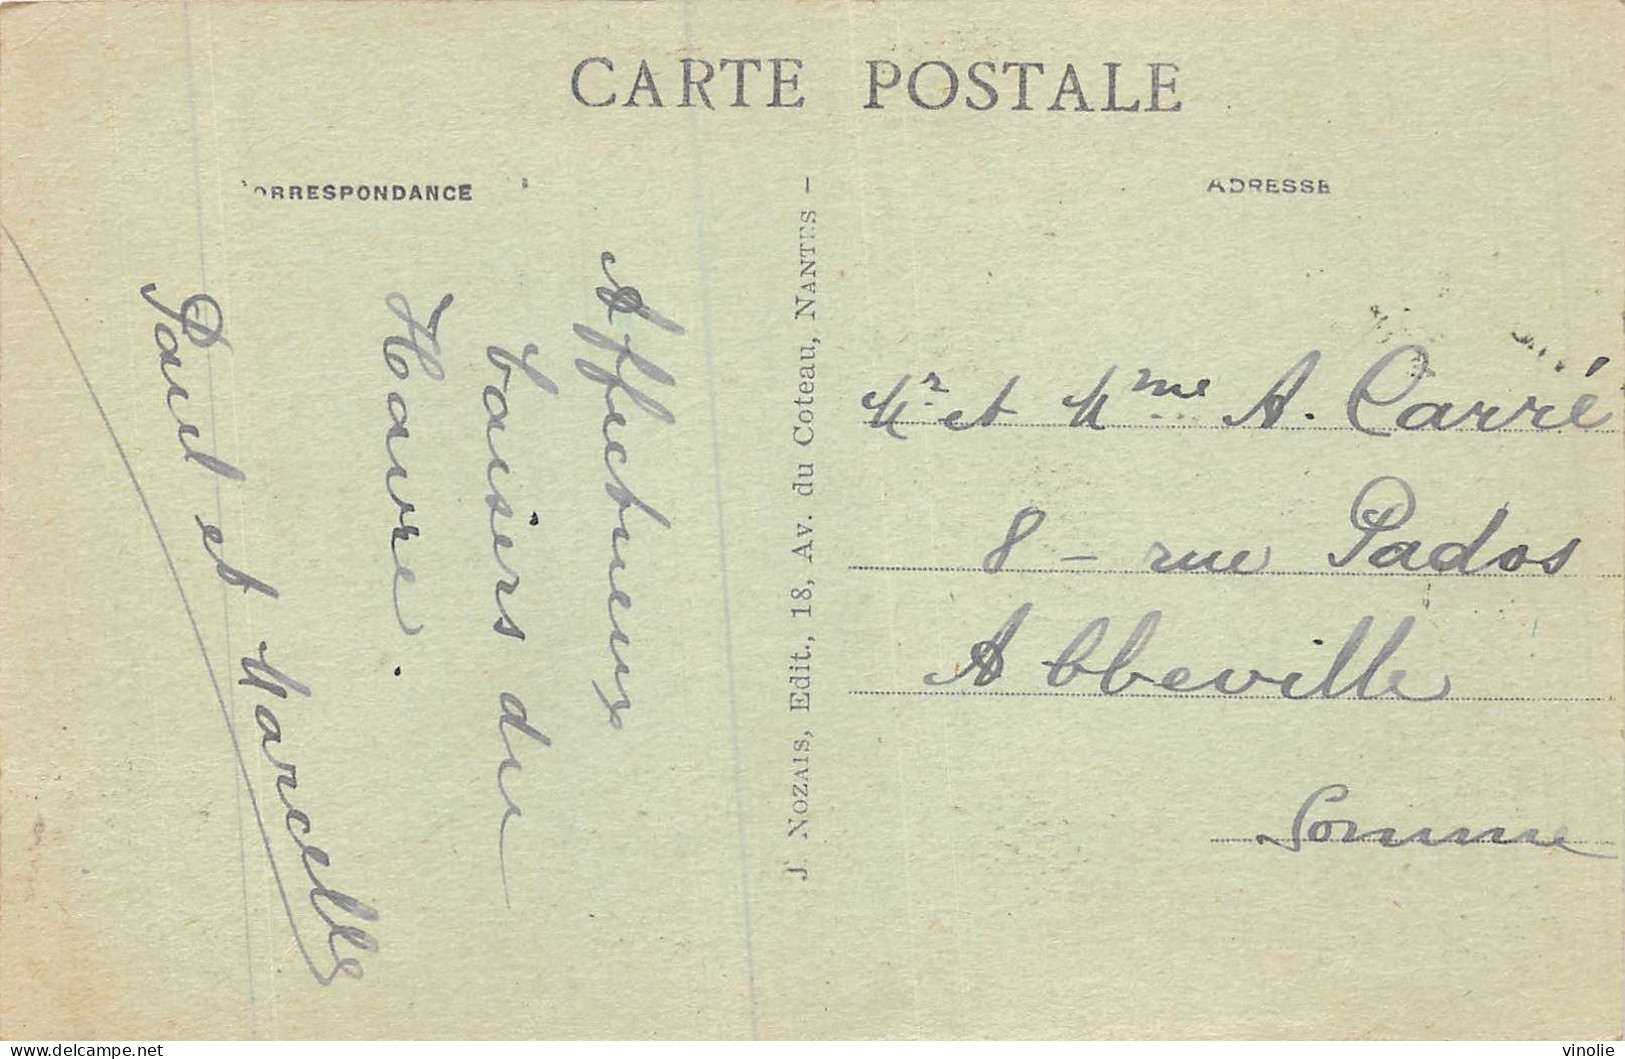 CARTE POSTALE
ORRESPONDANCE
ADRESSE
Affectueux
baisers du
Havre.
Paul et Marcelle
J. NOZAIS, Edit., 18, Av. du Coteau, NANTES –
Mr et Mme A. Carré
8 – rue Pados
Abbeville
Somme
vinolie
https://www.delcampe.net